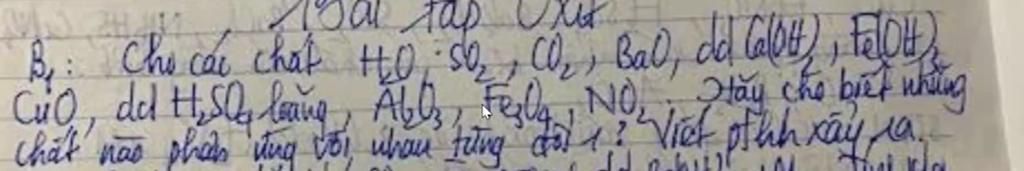 Bài tập Oxit
B1: Cho các chất H2O, SO2, CO2, BaO, dd Ca(OH)2, Fe(OH)3
CuO, dd H2SO4 loãng, Al2O3, Fe3O4, NO2. Hãy cho biết những
chất nào phản ứng với nhau từng đôi 1? Viết pthh xảy ra.